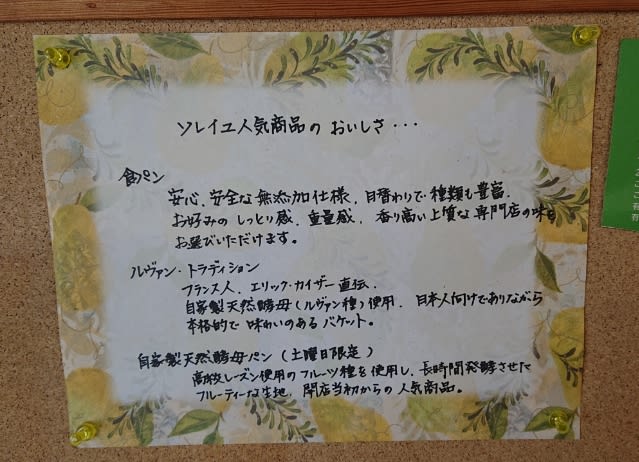 ソレイユ人気商品の おいしさ・・・
食パン
安心、安全な無添加仕様、日替わりで種類も豊富、
お好みの しっとり感、重量感、香り高い上質な専門店の味を
お選びいただけます。
ルヴァン・トラディション
フランス人、エリック・カイザー直伝、
自家製天然酵母(ルヴァン種)使用、日本人向けでありながら
本格的で 味わいのある バケット。
自家製天然酵母パン(土曜日限定)
高級レーズン使用のフルーツ種を使用し、長時間発酵させた
フルーティーな生地、開店当初からの人気商品。